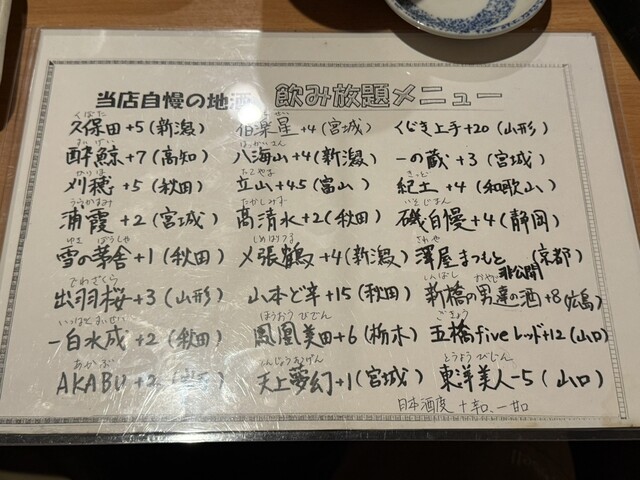 当店自慢の地酒 飲み放題メニュー
くぼた
久保田+5(新潟) 伯楽星+4(宮城) くどき上手+20(山形)
すいげい はっかいさん
酔鯨+7(高知) 八海山+4(新潟) 一の蔵+3(宮城)
かりほ たてやま きっど
刈穂+5(秋田) 立山+4.5(富山) 紀土+4(和歌山)
うらかすみ たかしみず いそじまん
浦霞+2(宮城) 高清水+2(秋田) 磯自慢+4(静岡)
ゆき ぼうしゃ しめはりつる さわや
雪の茅舎+1(秋田) 〆張鶴+4(新潟) 澤屋まつもと 非公開(京都)
でわざくら しんばし おやじ
出羽桜+3(山形) 山本ど辛+15(秋田) 新橋の男達の酒+8(広島)
いっぱくすいせい ほうおうびでん ごきょう
一白水成+2(秋田) 鳳凰美田+6(栃木) 五橋fiveレッド+12(山口)
あかぶ てんじょうむげん とうようびじん
AKABU+2 天上夢幻+1(宮城) 東洋美人-5(山口)
日本酒度 +辛口、-甘口